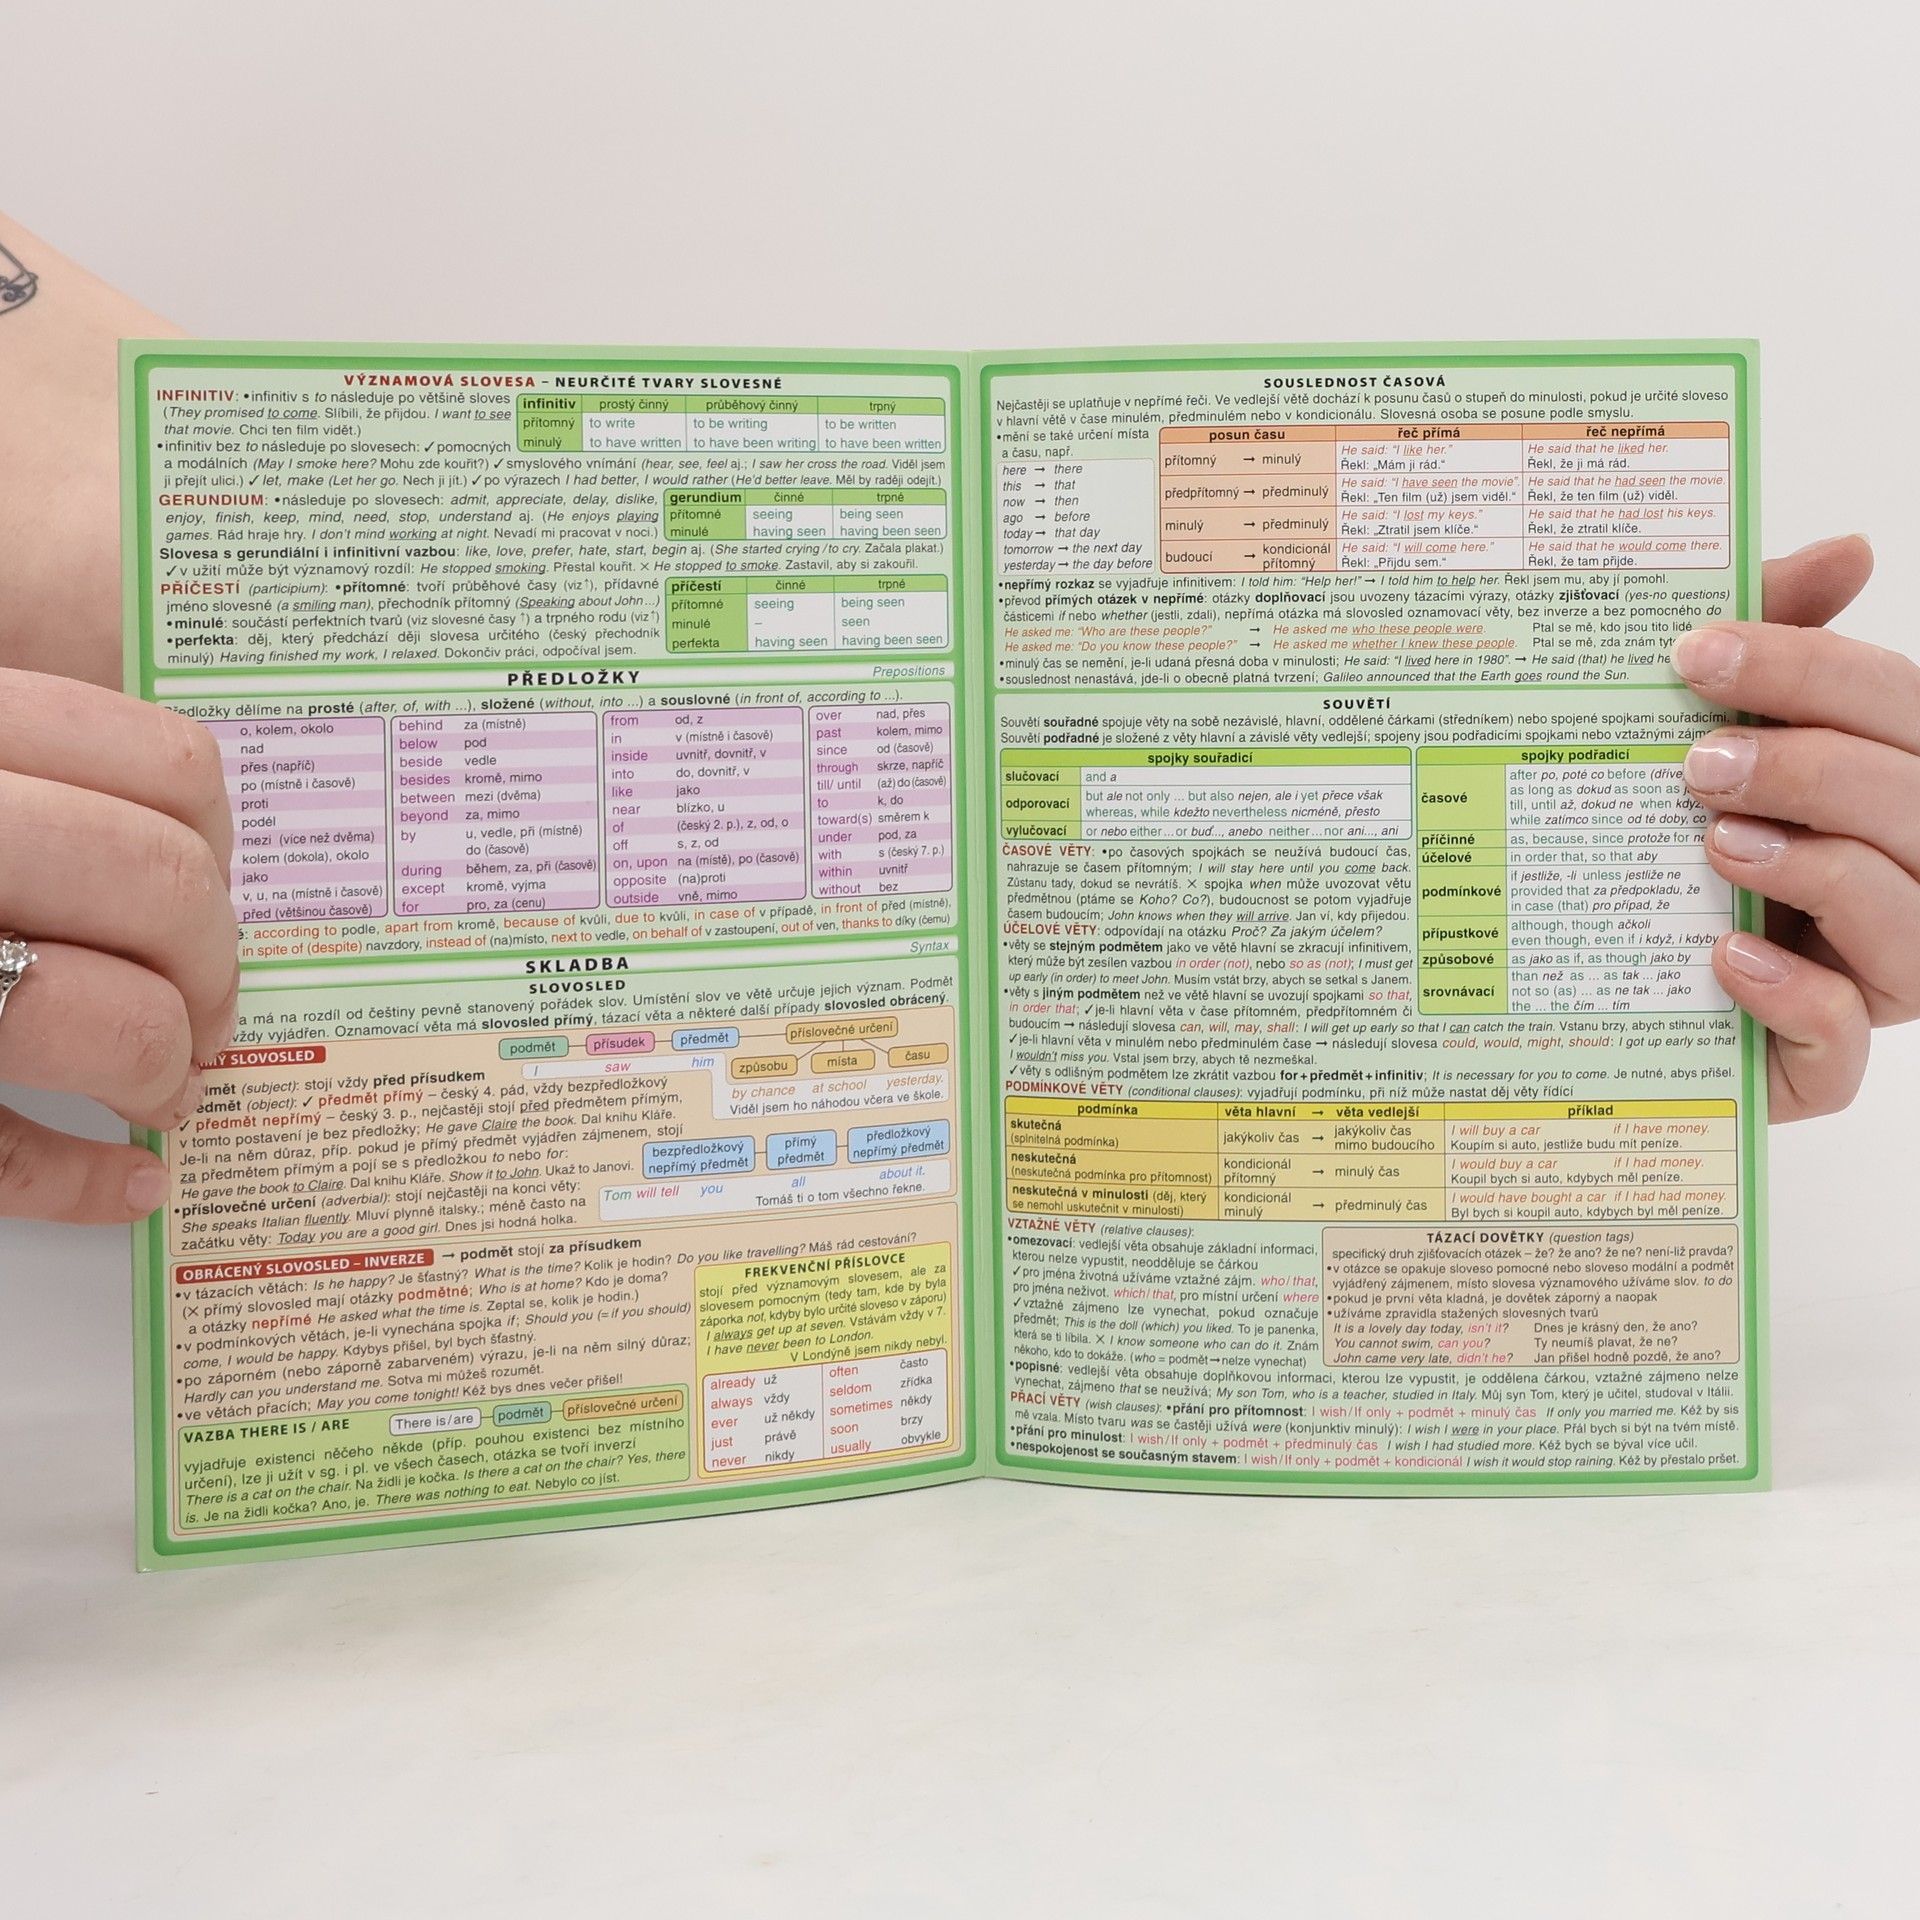 VÝZNAMOVÁ SLOVESA – NEURČITÉ TVARY SLOVESNÉ
INFINITIV: •infinitiv s to následuje po většině sloves
(They promised to come. Slíbili, že přijdou. I want to see
that movie. Chci ten film vidět.)
•infinitiv bez to následuje po slovesech: ✓pomocných
infinitiv prostý činný průběhový činný trpný
přítomný to write to be writing to be written
minulý to have written to have been writing to have been written
a modálních (May I smoke here? Mohu zde kouřit?) ✓smyslového vnímání (hear, see, feel aj.; I saw her cross the road. Viděl jsem
ji přejít ulici.) ✓ let, make (Let her go. Nech ji jít.) ✓po výrazech I had better, I would rather (He'd better leave. Měl by raději odejít.)
GERUNDIUM: •následuje po slovesech: admit, appreciate, delay, dislike,
enjoy, finish, keep, mind, need, stop, understand aj. (He enjoys playing
games. Rád hraje hry. I don't mind working at night. Nevadí mi pracovat v noci.)
gerundium činné trpné
přítomné seeing being seen
minulé having seen having been seen
Slovesa s gerundiální i infinitivní vazbou: like, love, prefer, hate, start, begin aj. (She started crying / to cry. Začala plakat.)
✓v užití může být významový rozdíl: He stopped smoking. Přestal kouřit. × He stopped to smoke. Zastavil, aby si zakouřil.
PŘÍČESTÍ (participium): •přítomné: tvoří průběhové časy (viz↑), přídavné
jméno slovesné (a smiling man), přechodník přítomný (Speaking about John...)
•minulé: součástí perfektních tvarů (viz slovesné časy ↑) a trpného rodu (viz↑)
•perfekta: děj, který předchází ději slovesa určitého (český přechodník
minulý) Having finished my work, I relaxed. Dokončiv práci, odpočíval jsem.
příčestí činné trpné
přítomné seeing being seen
minulé – seen
perfekta having seen having been seen
PŘEDLOŽKY Prepositions
Předložky dělíme na prosté (after, of, with ...), složené (without, into ...) a souslovné (in front of, according to ...).
o, kolem, okolo
nad
přes (napříč)
po (místně i časově)
proti
podél
mezi (více než dvěma)
kolem (dokola), okolo
jako
v, u, na (místně i časově)
před (většinou časově)
behind za (místně)
below pod
beside vedle
besides kromě, mimo
between mezi (dvěma)
beyond za, mimo
by u, vedle, při (místně)
do (časově)
during během, za, při (časově)
except kromě, vyjma
for pro, za (cenu)
from od, z
in v (místně i časově)
inside uvnitř, dovnitř, v
into do, dovnitř, v
like jako
near blízko, u
of (český 2. p.), z, od, o
off s, z, od
on, upon na (místě), po (časově)
opposite (na)proti
outside vně, mimo
over nad, přes
past kolem, mimo
since od (časově)
through skrze, napříč
till/ until (až) do (časově)
to k, do
toward(s) směrem k
under pod, za
with s (český 7. p.)
within uvnitř
without bez
according to podle, apart from kromě, because of kvůli, due to kvůli, in case of v případě, in front of před (místně),
in spite of (despite) navzdory, instead of (na)místo, next to vedle, on behalf of v zastoupení, out of ven, thanks to díky (čemu)
SKLADBA Syntax
SLOVOSLED
a má na rozdíl od češtiny pevně stanovený pořádek slov. Umístění slov ve větě určuje jejich význam. Podmět
vždy vyjádřen. Oznamovací věta má slovosled přímý, tázací věta a některé další případy slovosled obrácený.
SLOVOSLED
podmět přísudek předmět příslovečné určení
způsobu místa času
I saw him by chance at school yesterday.
Viděl jsem ho náhodou včera ve škole.
(subject): stojí vždy před přísudkem
(object): ✓ předmět přímý – český 4. pád, vždy bezpředložkový
✓ předmět nepřímý – český 3. p., nejčastěji stojí před předmětem přímým,
v tomto postavení je bez předložky; He gave Claire the book. Dal knihu Kláře.
Je-li na něm důraz, příp. pokud je přímý předmět vyjádřen zájmenem, stojí
za předmětem přímým a pojí se s předložkou to nebo for:
He gave the book to Claire. Dal knihu Kláře. Show it to John. Ukaž to Janovi.
•příslovečné určení (adverbial): stojí nejčastěji na konci věty:
She speaks Italian fluently. Mluví plynně italsky.; méně často na
začátku věty: Today you are a good girl. Dnes jsi hodná holka.
bezpředložkový nepřímý předmět přímý předmět předložkový nepřímý předmět
Tom will tell you all about it.
Tomáš ti o tom všechno řekne.
OBRÁCENÝ SLOVOSLED – INVERZE → podmět stojí za přísudkem
•v tázacích větách: Is he happy? Je šťastný? What is the time? Kolik je hodin? Do you like travelling? Máš rád cestování?
(× přímý slovosled mají otázky podmětné; Who is at home? Kdo je doma?
a otázky nepřímé He asked what the time is. Zeptal se, kolik je hodin.)
•v podmínkových větách, je-li vynechána spojka if; Should you (= if you should)
come, I would be happy. Kdybys přišel, byl bych šťastný.
•po záporném (nebo záporně zabarveném) výrazu, je-li na něm silný důraz;
Hardly can you understand me. Sotva mi můžeš rozumět.
•ve větách přacích; May you come tonight! Kéž bys dnes večer přišel!
FREKVENČNÍ PŘÍSLOVCE
stojí před významovým slovesem, ale za
slovesem pomocným (tedy tam, kde by byla
záporka not, kdyby bylo určité sloveso v záporu)
I always get up at seven. Vstávám vždy v 7.
I have never been to London.
V Londýně jsem nikdy nebyl.
already už
always vždy
ever už někdy
just právě
never nikdy
often často
seldom zřídka
sometimes někdy
soon brzy
usually obvykle
VAZBA THERE IS / ARE There is/are podmět příslovečné určení
vyjadřuje existenci něčeho někde (příp. pouhou existenci bez místního
určení), lze ji užít v sg. i pl. ve všech časech, otázka se tvoří inverzí
There is a cat on the chair. Na židli je kočka. Is there a cat on the chair? Yes, there
is. Je na židli kočka? Ano, je. There was nothing to eat. Nebylo co jíst.
SOUSLEDNOST ČASOVÁ
Nejčastěji se uplatňuje v nepřímé řeči. Ve vedlejší větě dochází k posunu časů o stupeň do minulosti, pokud je určité sloveso
v hlavní větě v čase minulém, předminulém nebo v kondicionálu. Slovesná osoba se posune podle smyslu.
•mění se také určení místa
a času, např.
here → there
this → that
now → then
ago → before
today → that day
tomorrow → the next day
yesterday → the day before
posun času řeč přímá řeč nepřímá
přítomný → minulý He said: “I like her.” He said that he liked her.
Řekl: „Mám ji rád.“ Řekl, že ji má rád.
předpřítomný → předminulý He said: “I have seen the movie”. He said that he had seen the movie.
Řekl: „Ten film (už) jsem viděl.“ Řekl, že ten film (už) viděl.
minulý → předminulý He said: “I lost my keys.” He said that he had lost his keys.
Řekl: „Ztratil jsem klíče.“ Řekl, že ztratil klíče.
budoucí → kondicionál přítomný He said: “I will come here.” He said that he would come there.
Řekl: „Přijdu sem.“ Řekl, že tam přijde.
•nepřímý rozkaz se vyjadřuje infinitivem: I told him: “Help her!” → I told him to help her. Řekl jsem mu, aby jí pomohl.
•převod přímých otázek v nepřímé: otázky doplňovací jsou uvozeny tázacími výrazy, otázky zjišťovací (yes-no questions)
částicemi if nebo whether (jestli, zdali), nepřímá otázka má slovosled oznamovací věty, bez inverze a bez pomocného do
He asked me: “Who are these people?” → He asked me who these people were. Ptal se mě, kdo jsou tito lidé
He asked me: “Do you know these people?” → He asked me whether I knew these people. Ptal se mě, zda znám
•minulý čas se nemění, je-li udaná přesná doba v minulosti; He said: “I lived here in 1980”. → He said (that) he lived
•souslednost nenastává, jde-li o obecně platná tvrzení; Galileo announced that the Earth goes round the Sun.
SOUVĚTÍ
Souvětí souřadné spojuje věty na sobě nezávislé, hlavní, oddělené čárkami (středníkem) nebo spojené spojkami souřadicími.
Souvětí podřadné je složené z věty hlavní a závislé věty vedlejší; spojeny jsou podřadicími spojkami nebo vztažnými
spojky souřadicí
slučovací and a
odporovací but ale not only ... but also nejen, ale i yet přece však
whereas, while kdežto nevertheless nicméně, přesto
vylučovací or nebo either...or buď..., anebo neither...nor ani..., ani
spojky podřadicí
časové after po, poté co before (dříve
as long as dokud as soon as
till, until až, dokud ne when když,
while zatímco since od té doby, co
příčinné as, because, since protože for
účelové in order that, so that aby
podmínkové if jestliže, -li unless jestliže ne
provided that za předpokladu, že
in case (that) pro případ, že
přípustkové although, though ačkoli
even though, even if i když, i kdyby
způsobové as jako as if, as though jako by
srovnávací than než as ... as tak ... jako
not so (as) ... as ne tak ... jako
the ... the čím ... tím
ČASOVÉ VĚTY: •po časových spojkách se neužívá budoucí čas,
nahrazuje se časem přítomným; I will stay here until you come back.
Zůstanu tady, dokud se nevrátíš. × spojka when může uvozovat větu
předmětnou (ptáme se Koho? Co?), budoucnost se potom vyjadřuje
časem budoucím; John knows when they will arrive. Jan ví, kdy přijedou.
ÚČELOVÉ VĚTY: odpovídají na otázku Proč? Za jakým účelem?
•věty se stejným podmětem jako ve větě hlavní se zkracují infinitivem,
který může být zesílen vazbou in order (not), nebo so as (not); I must get
up early (in order) to meet John. Musím vstát brzy, abych se setkal s Janem.
•věty s jiným podmětem než ve větě hlavní se uvozují spojkami so that,
in order that; ✓je-li hlavní věta v čase přítomném, předpřítomném či
budoucím → následují slovesa can, will, may, shall: I will get up early so that I can catch the train. Vstanu brzy, abych stihnul vlak.
✓je-li hlavní věta v minulém nebo předminulém čase → následují slovesa could, would, might, should: I got up early so that
I wouldn't miss you. Vstal jsem brzy, abych tě nezmeškal.
✓věty s odlišným podmětem lze zkrátit vazbou for+předmět+infinitiv; It is necessary for you to come. Je nutné, abys přišel.
PODMÍNKOVÉ VĚTY (conditional clauses): vyjadřují podmínku, při níž může nastat děj věty řídící
podmínka věta hlavní → věta vedlejší příklad
skutečná (splnitelná podmínka) jakýkoliv čas → jakýkoliv čas mimo budoucího I will buy a car if I have money.
Koupím si auto, jestliže budu mít peníze.
neskutečná (neskutečná podmínka pro přítomnost) kondicionál přítomný → minulý čas I would buy a car if I had money.
Koupil bych si auto, kdybych měl peníze.
neskutečná v minulosti (děj, který se nemohl uskutečnit v minulosti) kondicionál minulý → předminulý čas I would have bought a car if I had had money.
Byl bych si koupil auto, kdybych byl měl peníze.
VZTAŽNÉ VĚTY (relative clauses):
•omezovací: vedlejší věta obsahuje základní informaci,
kterou nelze vypustit, neodděluje se čárkou
✓pro jména životná užíváme vztažné zájm. who/that,
pro jména neživot. which/that, pro místní určení where
✓vztažné zájmeno lze vynechat, pokud označuje
předmět; This is the doll (which) you liked. To je panenka,
která se ti líbila. × I know someone who can do it. Znám
někoho, kdo to dokáže. (who = podmět→nelze vynechat)
TÁZACÍ DOVĚTKY (question tags)
specifický druh zjišťovacích otázek – že? že ano? že ne? není-liž pravda?
•v otázce se opakuje sloveso pomocné nebo sloveso modální a podmět
vyjádřený zájmenem, místo slovesa významového užíváme slov. to do
•pokud je první věta kladná, je dovětek záporný a naopak
•užíváme zpravidla stažených slovesných tvarů
It is a lovely day today, isn't it? Dnes je krásný den, že ano?
You cannot swim, can you? Ty neumíš plavat, že ne?
John came very late, didn't he? Jan přišel hodně pozdě, že ano?
•popisné: vedlejší věta obsahuje doplňkovou informaci, kterou lze vypustit, je oddělena čárkou, vztažné zájmeno nelze
vynechat, zájmeno that se neužívá; My son Tom, who is a teacher, studied in Italy. Můj syn Tom, který je učitel, studoval v Itálii.
PŘACÍ VĚTY (wish clauses): •přání pro přítomnost: I wish/If only + podmět + minulý čas If only you married me. Kéž by sis
mě vzala. Místo tvaru was se častěji užívá were (konjunktiv minulý): I wish I were in your place. Přál bych si být na tvém místě.
•přání pro minulost: I wish/If only + podmět + předminulý čas I wish I had studied more. Kéž bych se býval více učil.
•nespokojenost se současným stavem: I wish/If only + podmět + kondicionál I wish it would stop raining. Kéž by přestalo pršet.